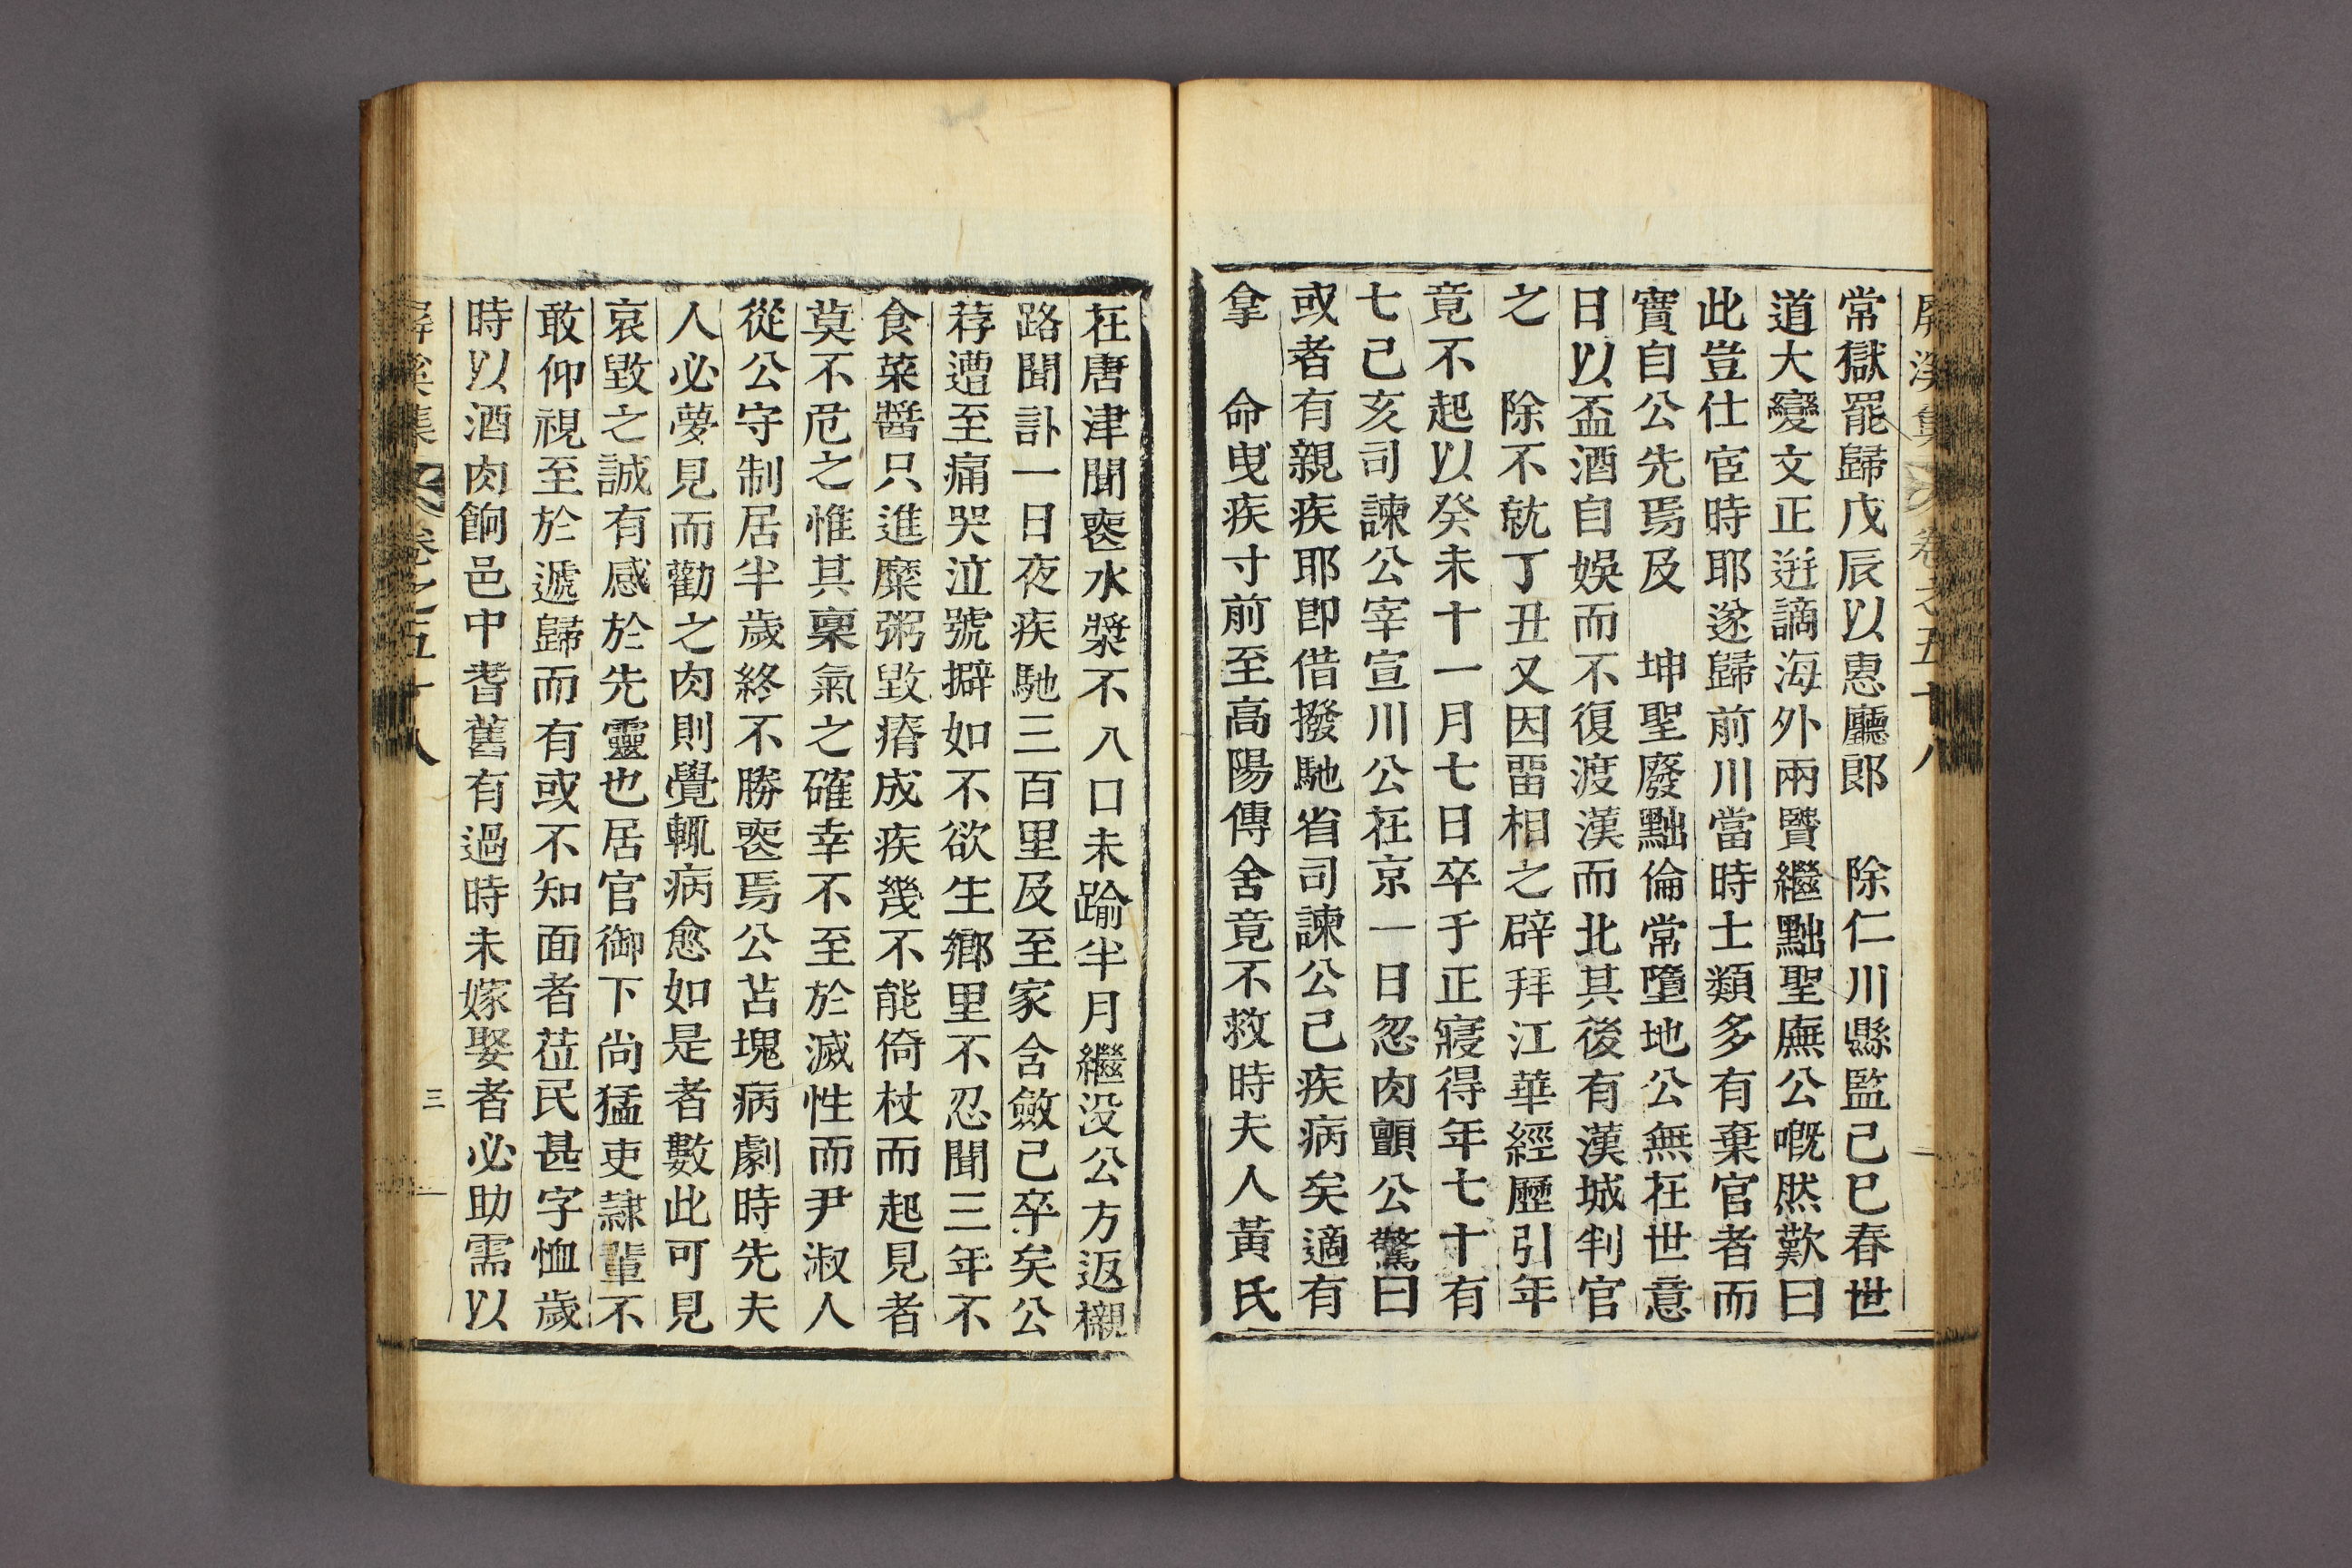 屛溪集 卷之五十八
常獄罷歸戊辰以惠廳郎　除仁川縣監己巳春世
道大變文正逬謫海外兩賢繼黜聖廡公嘅然歎曰
此豈仕宦時耶遂歸前川當時士類多有棄官者而
實自公先焉及　坤聖廢黜倫常墮地公無在世意
日以盃酒自娛而不復渡漢而北其後有漢城判官
之　除不就丁丑又因畱相之辟拜江華經歷引年
竟不起以癸未十一月七日卒于正寢得年七十有
七己亥司諫公宰宣川公在京一日忽肉顫公驚曰
或者有親疾耶卽借撥馳省司諫公已疾病矣適有
拿　命曳疾寸前至高陽傳舍竟不救時夫人黃氏
在唐津聞喪水漿不入口未踰半月繼没公方返櫬
路聞訃一日夜疾馳三百里及至家含斂已卒矣公
荐遭至痛哭泣號擗如不欲生鄕里不忍聞三年不
食菜醬只進糜粥毀瘠成疾幾不能倚杖而起見者
莫不危之惟其稟氣之確幸不至於滅性而尹淑人
從公守制居半歲終不勝喪焉公苫塊病劇時先夫
人必夢見而勸之肉則覺輒病愈如是者數此可見
哀毀之誠有感於先靈也居官御下尙猛吏隷輩不
敢仰視至於遞歸而有或不知面者莅民甚字恤歲
時以酒肉餉邑中耆舊有過時未嫁娶者必助需以
屛溪集 卷之五十八 三